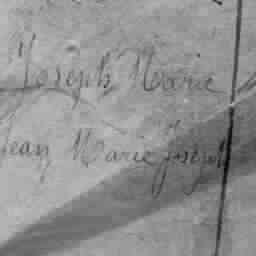 Joseph Marie
Jean Marie Joseph